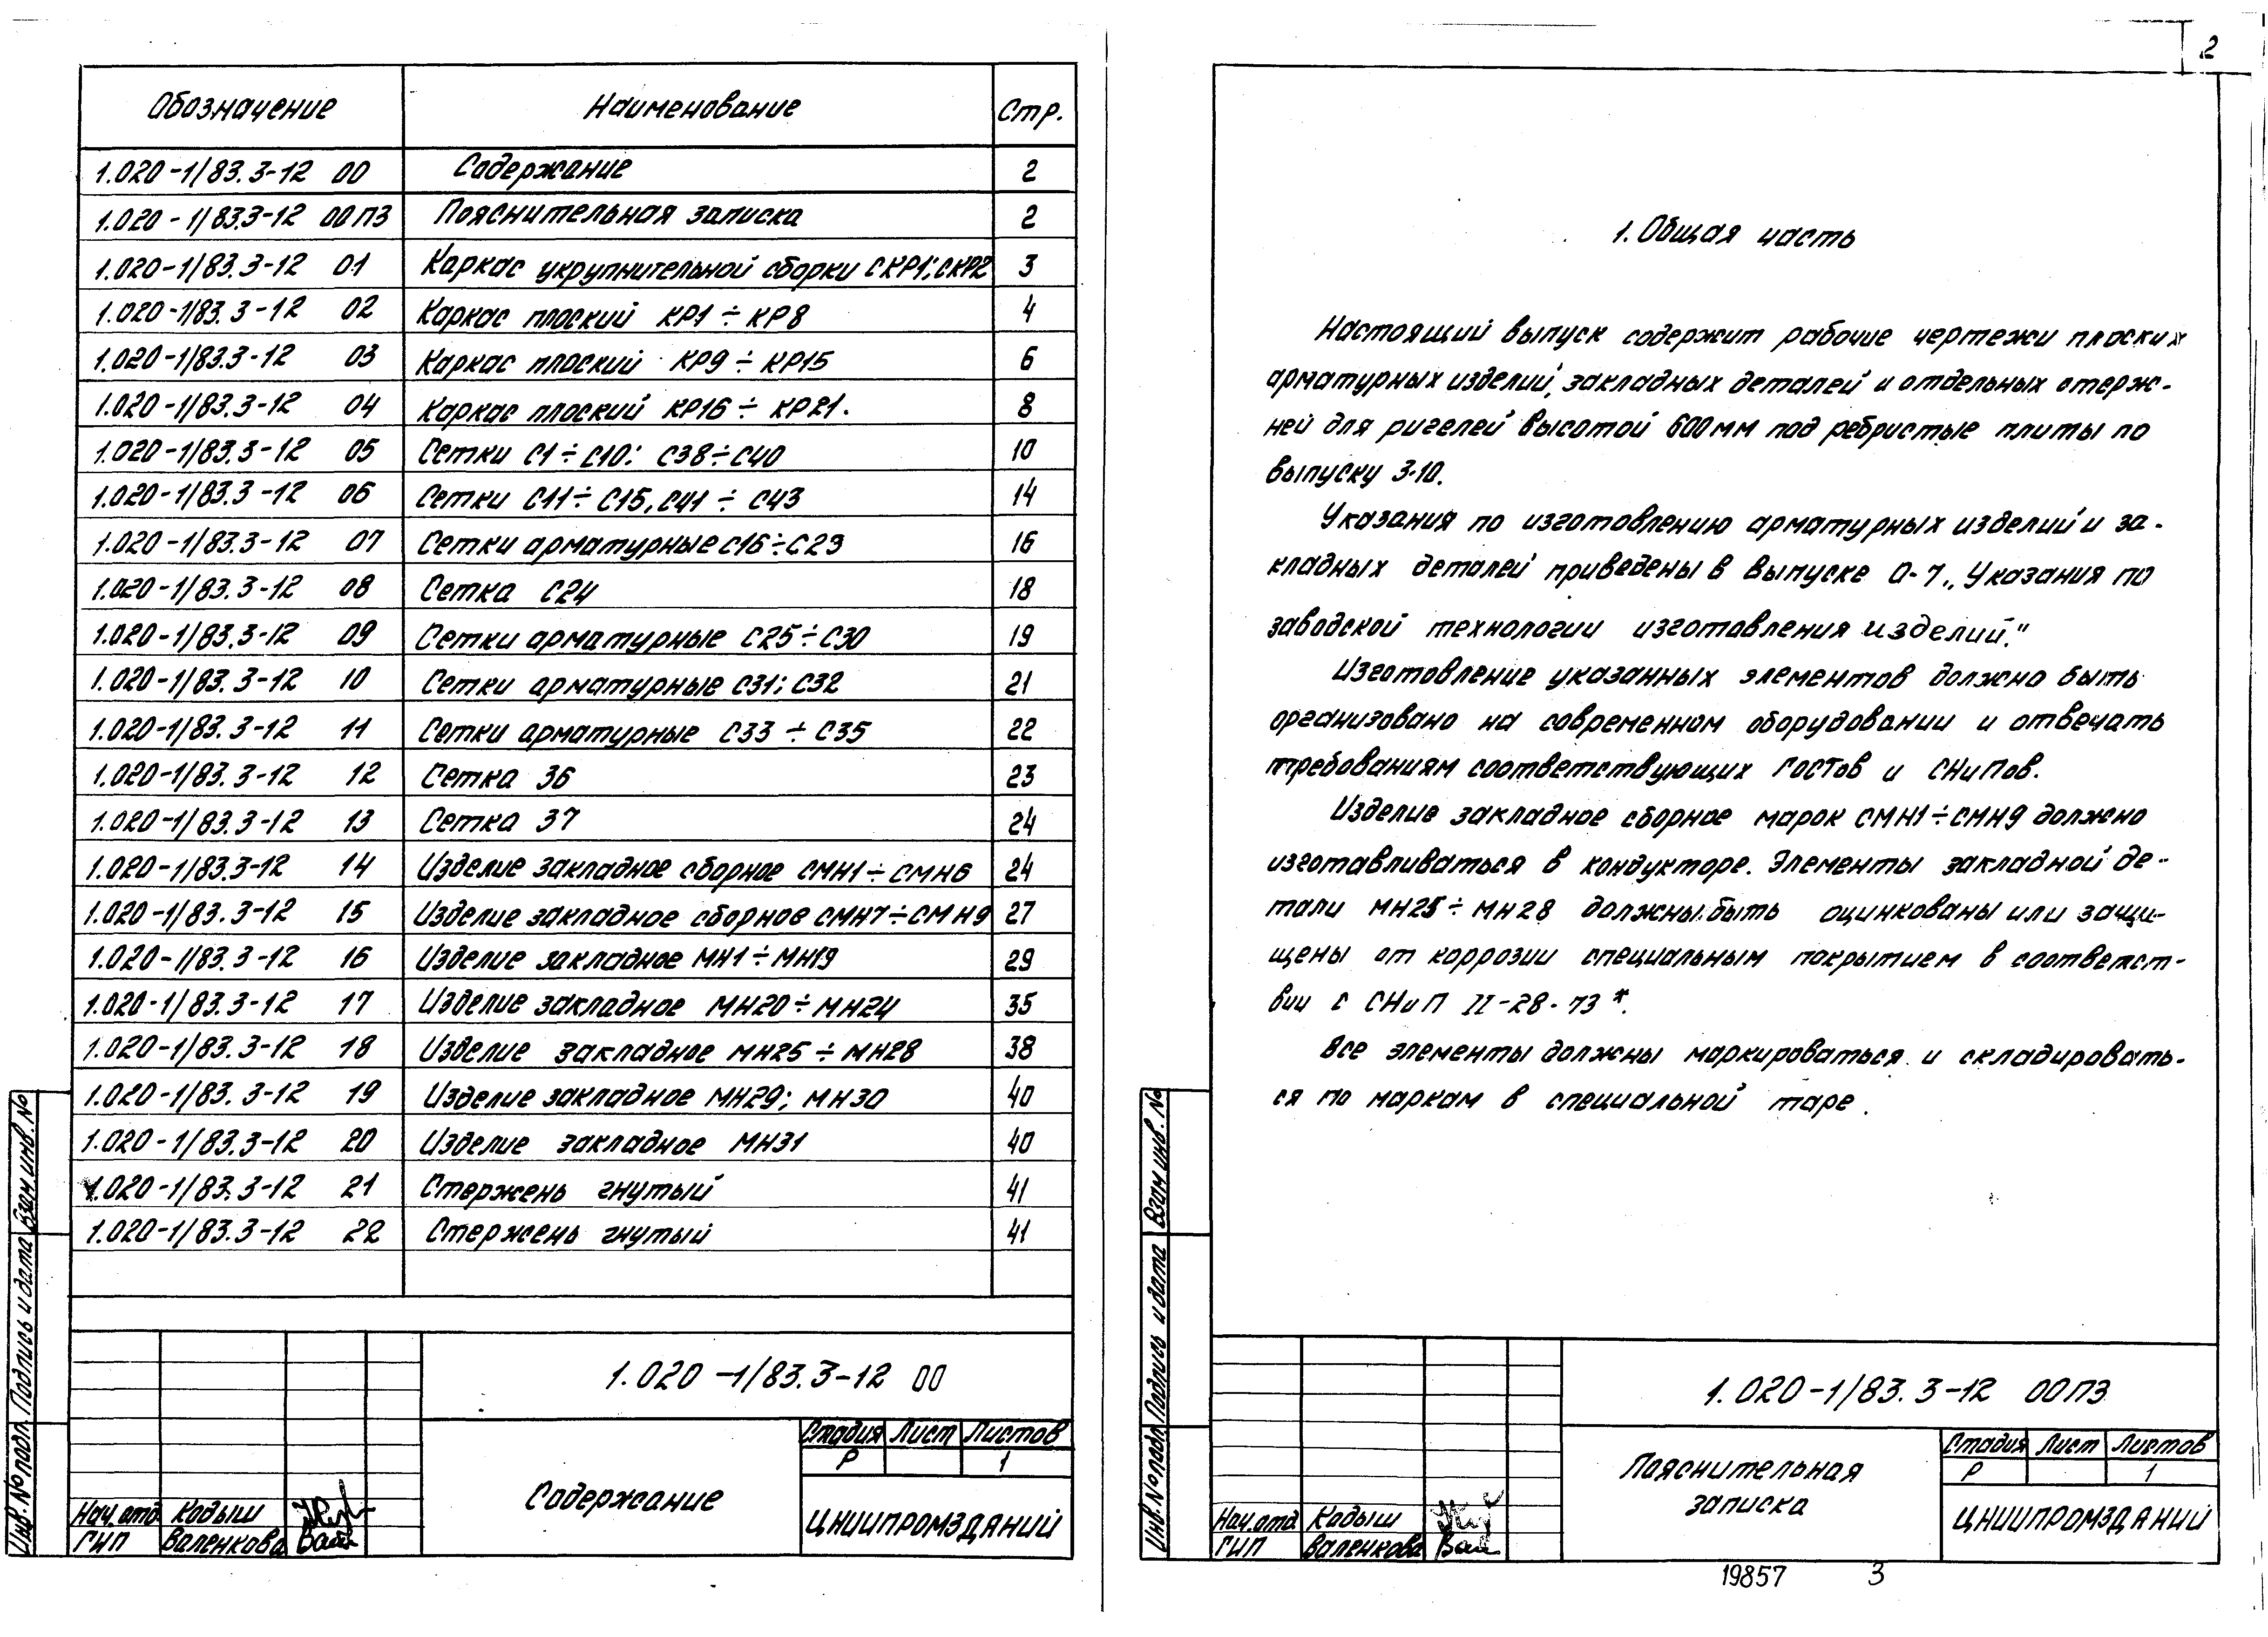 Обозначение Наименование Стр.
1.020-1/83.3-12 00 Содержание 2
1.020-1/83.3-12 00ПЗ Пояснительная записка 2
1.020-1/83.3-12 01 Каркас укрупнительной сборки СКР1; СКР2 3
1.020-1/83.3-12 02 Каркас плоский КР1 ÷ КР8 4
1.020-1/83.3-12 03 Каркас плоский КР9 ÷ КР15 6
1.020-1/83.3-12 04 Каркас плоский КР16 ÷ КР21. 8
1.020-1/83.3-12 05 Сетки С1 ÷ С10; С38 ÷ С40 10
1.020-1/83.3-12 06 Сетки С11 ÷ С15, С41 ÷ С43 14
1.020-1/83.3-12 07 Сетки арматурные С16 ÷ С23 16
1.020-1/83.3-12 08 Сетка С24 18
1.020-1/83.3-12 09 Сетки арматурные С25 ÷ С30 19
1.020-1/83.3-12 10 Сетки арматурные С31; С32 21
1.020-1/83.3-12 11 Сетки арматурные С33 ÷ С35 22
1.020-1/83.3-12 12 Сетка 36 23
1.020-1/83.3-12 13 Сетка 37 24
1.020-1/83.3-12 14 Изделие закладное сборное СМН1 ÷ СМН6 24
1.020-1/83.3-12 15 Изделие закладное сборное СМН7 ÷ СМН9 27
1.020-1/83.3-12 16 Изделие закладное МН1 ÷ МН19 29
1.020-1/83.3-12 17 Изделие закладное МН20 ÷ МН24 35
1.020-1/83.3-12 18 Изделие закладное МН25 ÷ МН28 38
1.020-1/83.3-12 19 Изделие закладное МН29; МН30 40
1.020-1/83.3-12 20 Изделие закладное МН31 40
1.020-1/83.3-12 21 Стержень гнутый 41
1.020-1/83.3-12 22 Стержень гнутый 41
Взам инв. №
Подпись и дата
Инв. № подл.
1.020-1/83.3-12 00
Содержание
Стадия Лист Листов
Р 1
ЦНИИПРОМЗДАНИЙ
Нач.отд. Кодыш
ГИП Валенкова
2
1. Общая часть
Настоящий выпуск содержит рабочие чертежи плоских
арматурных изделий, закладных деталей и отдельных стерж-
ней для ригелей высотой 600мм под ребристые плиты по
выпуску 3-10.
Указания по изготовлению арматурных изделий и за-
кладных деталей приведены в выпуске 0-7 „Указания по
заводской технологии изготовления изделий."
Изготовление указанных элементов должно быть
организовано на современном оборудовании и отвечать
требованиям соответствующих ГОСТов и СНиПов.
Изделие закладное сборное марок СМН1 ÷ СМН9 должно
изготавливаться в кондукторе. Элементы закладной де-
тали МН25 ÷ МН28 должны быть оцинкованы или защи-
щены от коррозии специальным покрытием в соответст-
вии с СНиП II-28-73*.
Все элементы должны маркироваться и складировать-
ся по маркам в специальной таре.
Взам инв. №
Подпись и дата
Инв. № подл.
1.020-1/83.3-12 00ПЗ
Пояснительная
записка
Стадия Лист Листов
Р 1
ЦНИИПРОМЗДАНИЙ
Нач.отд. Кодыш
ГИП Валенкова
19857 3